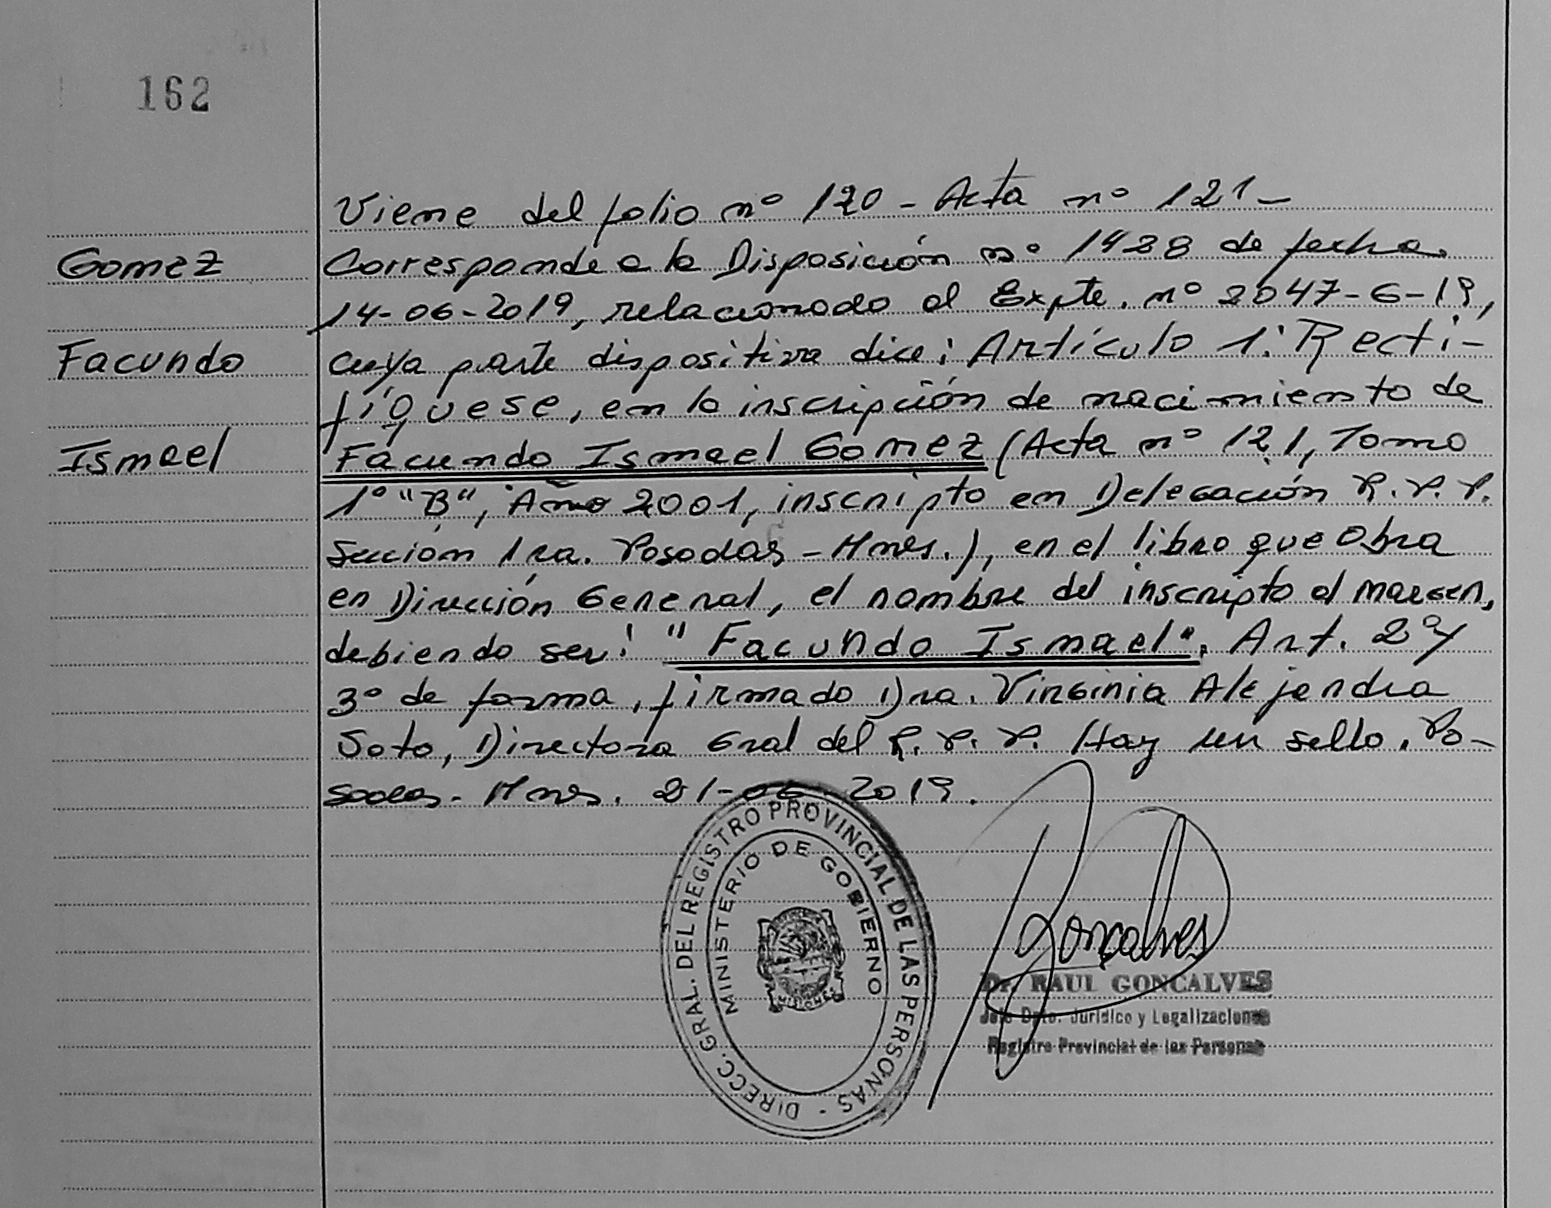 162
Viene del folio nº 120 - Acta nº 121 -
Gomez
Corresponde a la Disposición nº 1488 de fecha
14-06-2019, relacionado al Expte. nº 2047-G-19,
Facundo
cuya parte dispositiva dice: Artículo 1: Recti-
fíquese, en la inscripción de nacimiento de
Ismael
Facundo Ismael Gomez (Acta nº 121, Tomo
1º "B", Año 2001, inscripto en Delegación R.P.P.
Sección 1ra. Posadas - Mnes.), en el libro que Obra
en Dirección General, el nombre del inscripto al margen,
debiendo ser: "Facundo Ismael". Art. 2º y
3º de forma, firmado Dra. Virginia Alejandra
Soto, Directora Gral del R.P.P. Hay un sello. Po-
sadas - Mnes. 21-06-2019.
DIRECC. GRAL. DEL REGISTRO PROVINCIAL DE LAS PERSONAS -
MINISTERIO DE GOBIERNO
MISIONES
Goncalves
Dr. RAUL GONCALVES
Jefe Dpto. Jurídico y Legalizaciones
Registro Provincial de las Personas